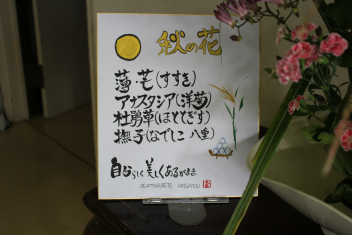 秋の花
薄・芒(すすき)
アナスタシア(洋菊)
杜鵑草(ほととぎす)
撫子(なでしこ 八重)
自分らしく美しくあるがまま